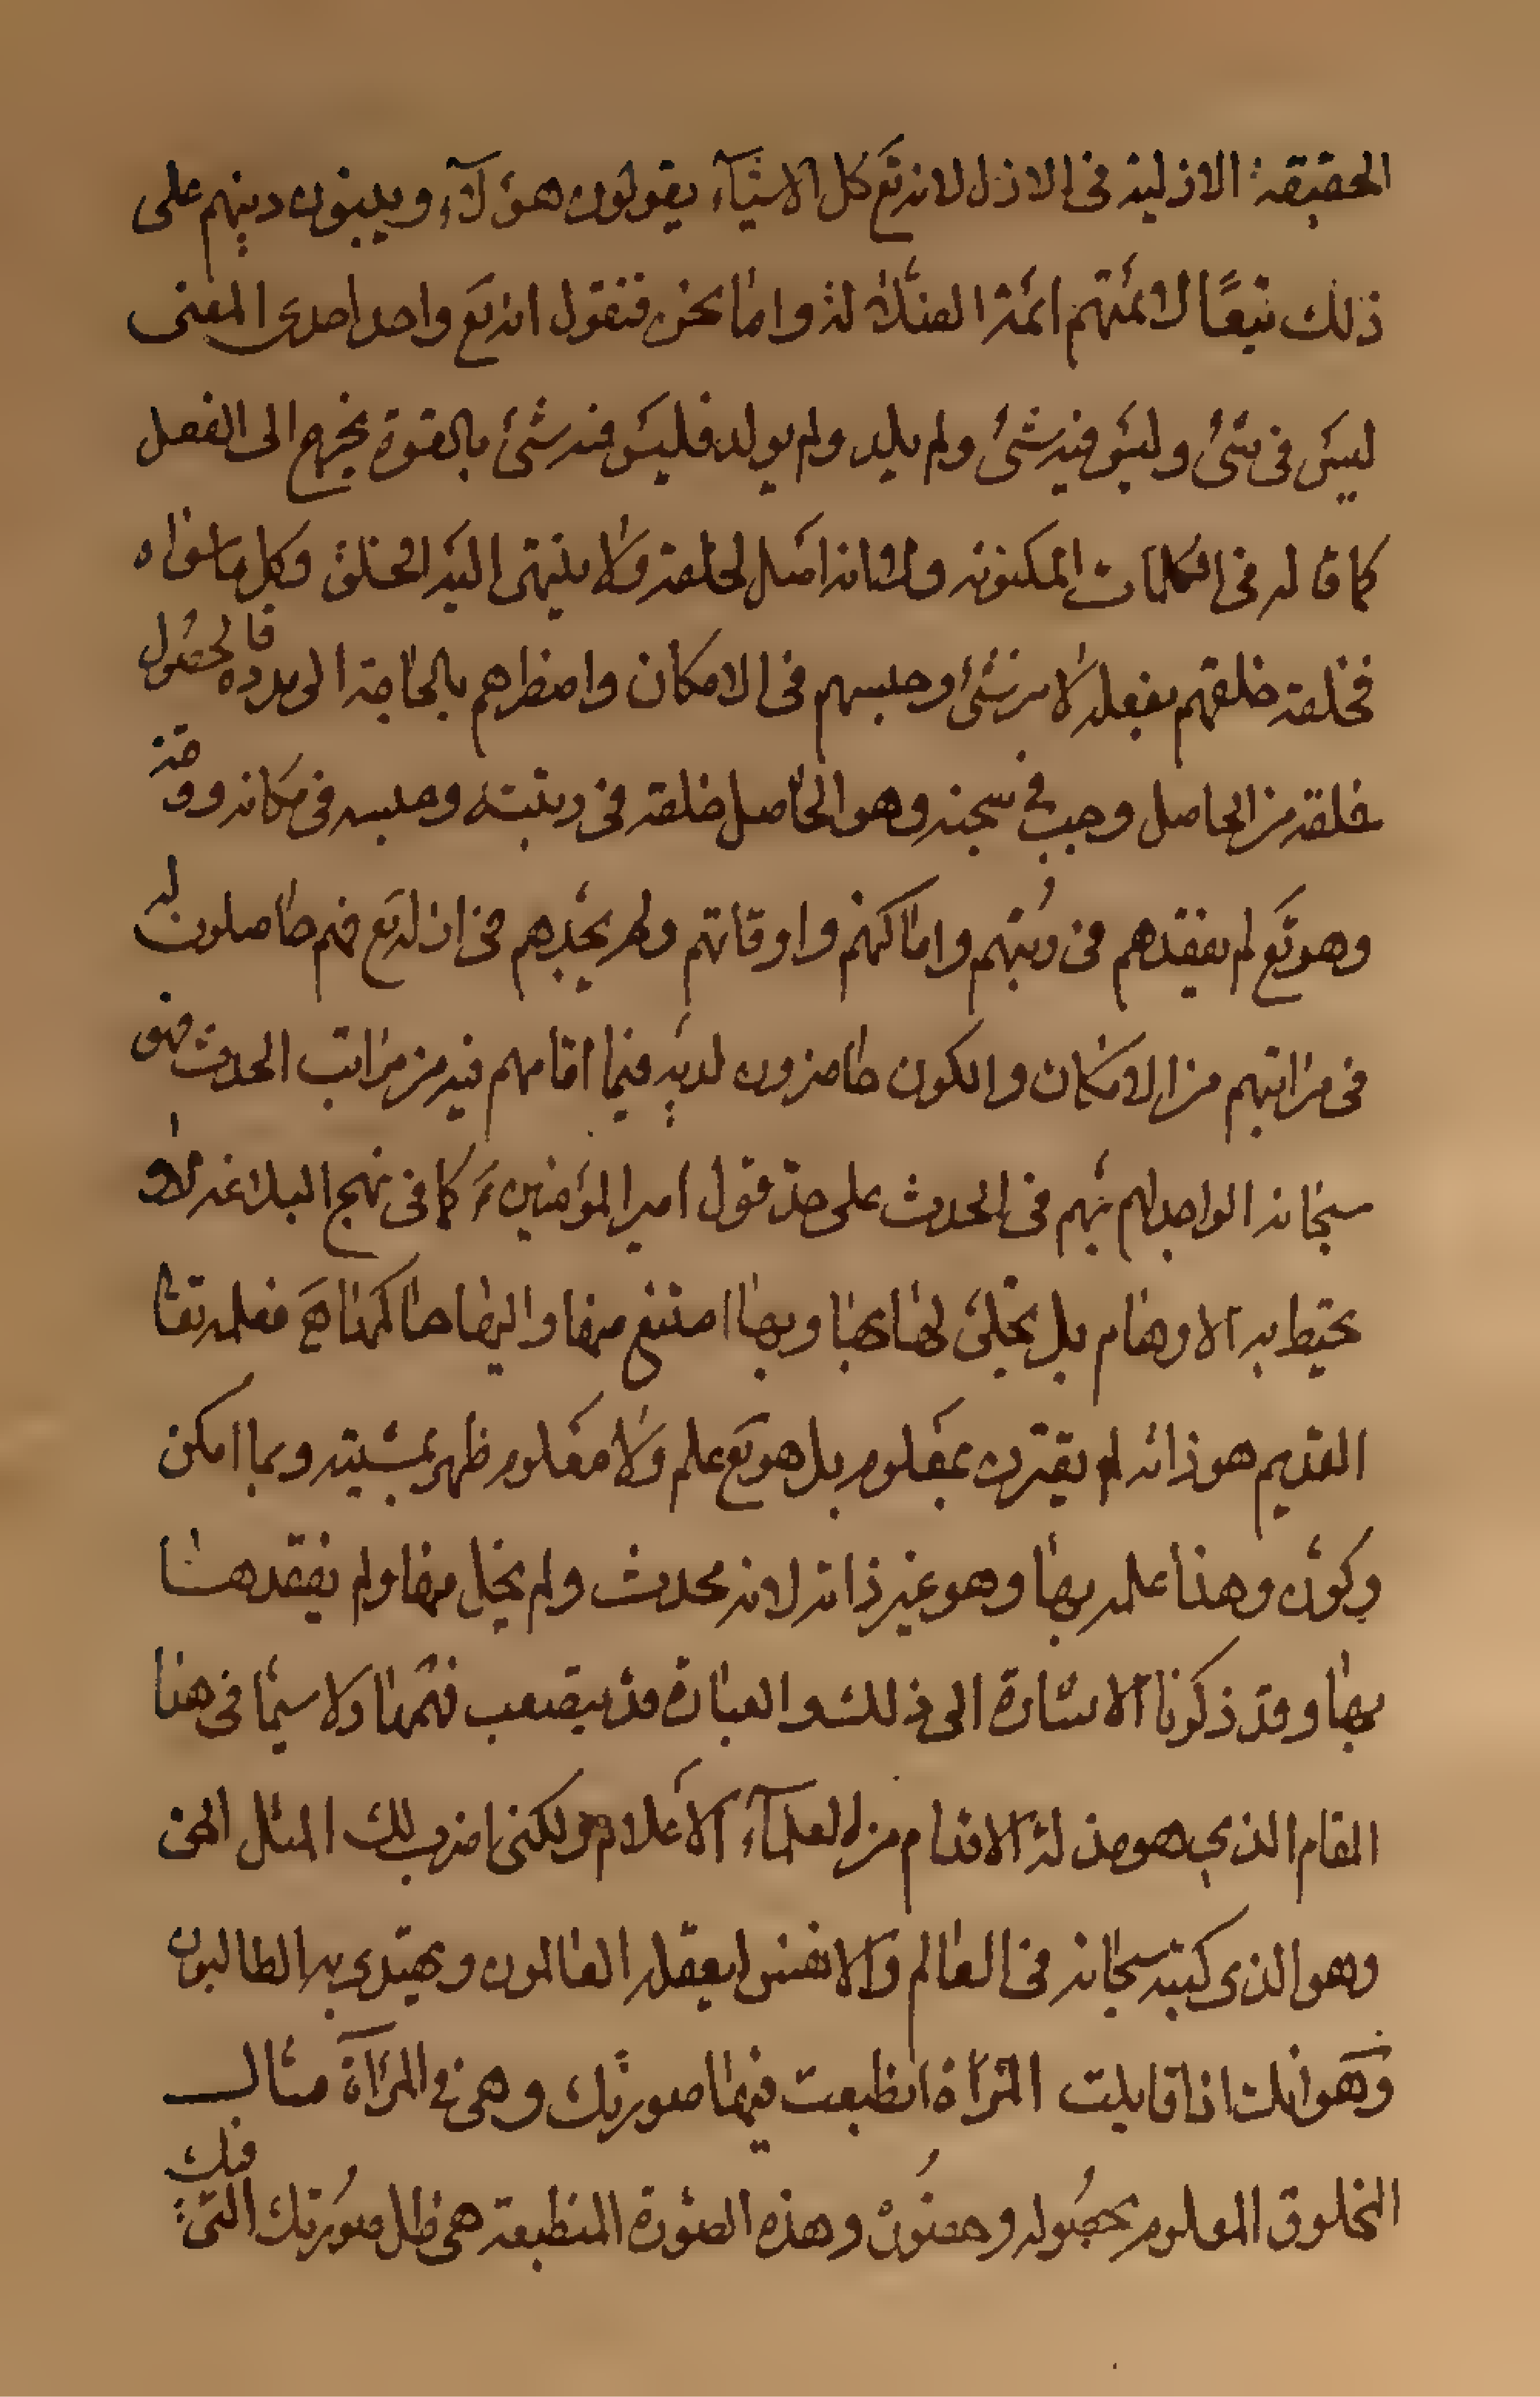 الحقيقة الازلية فى الازل لانه تع كل الاشيآء يقولون هؤلآء ويبنون دينهم على
ذلك تبعًا لائمتهم ائمة الضلالة واما نحن فنقول انه تع واحد احدى المعنى
ليس فى شئ وليس فيه شئ ولم يلد ولم يولد فليس فيه شئ بالقوة يخرج الى الفعل
كما قاله فى الكلمات المكنونه ولا انه اصل لخلقه ولا ينتهى اليه الخلق وكل ما سواه
فخلقه خلقهم بفعله لا من شئ وحبسهم فى الامكان واضطرهم بالحاجة الى مدده فالحصول
خلقه من الحاصل وجب فى سجنه وهو الحاصل خلقه فى رتبته وحبسه فى مكانه ووقته
وهو تع لم يفقدهم فى رتبهم واماكنهم واوقاتهم ولم يجدهم فى ازله تع فهم حاصلون له
فى مراتبهم من الامكان والكون حاضرون لديه فيما اقامهم فيه من مراتب الحدث فهو
سبحانه الواجد لهم بهم فى الحدث على حد قول امير المؤمنين ع كما فى نهج البلاغه لا
يحيط به الاوهام بل تجلى لها بها وبها امتنع منها واليها حاكمها هَ فعلمه تعا
القديم هو ذاته لم يقترن بمعلوم بل هو تع علم ولا معلوم ظهر بمشيته وبما امكن
وكون وهذا علمه بها وهو غير ذاته لانه محدث ولم يخل منها ولم يفقدها
بها وقد ذكرنا الاشارة الى ذلك والعبارة قد يصعب فهمها ولا سيما فى هذا
المقام الذي هو مزلة الاقدام من العلمآء الاعلام ولكنى اضرب لك المثل الحق
وهو الذى كتبه سبحانه فى العالم والانفس ليعقله العالمون ويهتدى به الطالبون
وهو انك اذا قابلت المرآة انطبعت فيها صورتك وهى فى المرآة مثال
المخلوق المعلوم بحصوله وحضوره وهذه الصورة المنطبعة هى ظل صورتك التى فيك